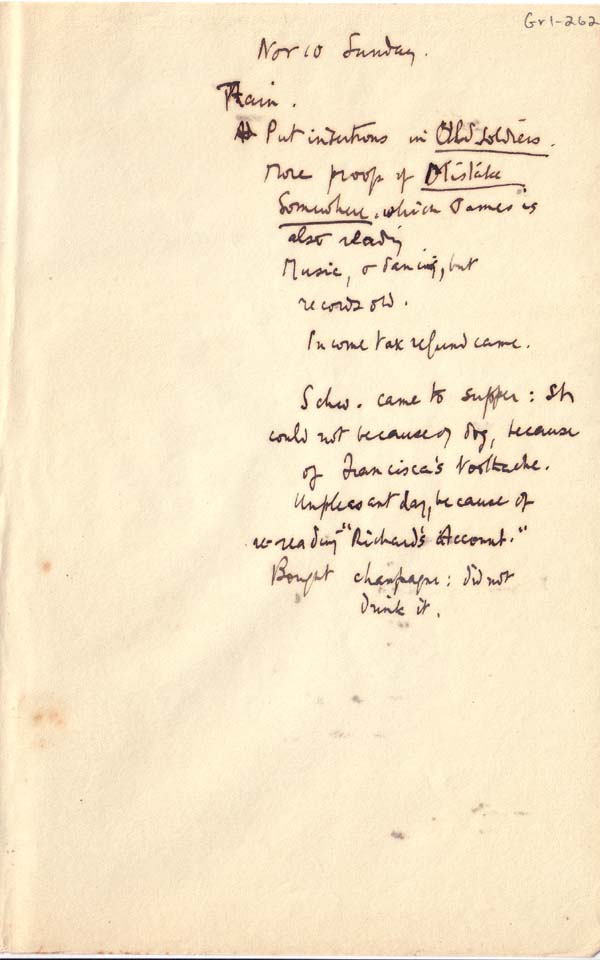 Gr1-262
Nov 10 Sunday.
Rain.
Put insertions in Old Soldiers.
More proof of Mistake
Somewhere, which James is
also reading
Music, & dancing, but
records old.
Income tax refund came.
Schw. came to supper: Sh
could not because of dog, because
of Francisca's toothache.
Unpleasant day, because of
re-reading "Richard's Account."
Bought champagne: did not
drink it.